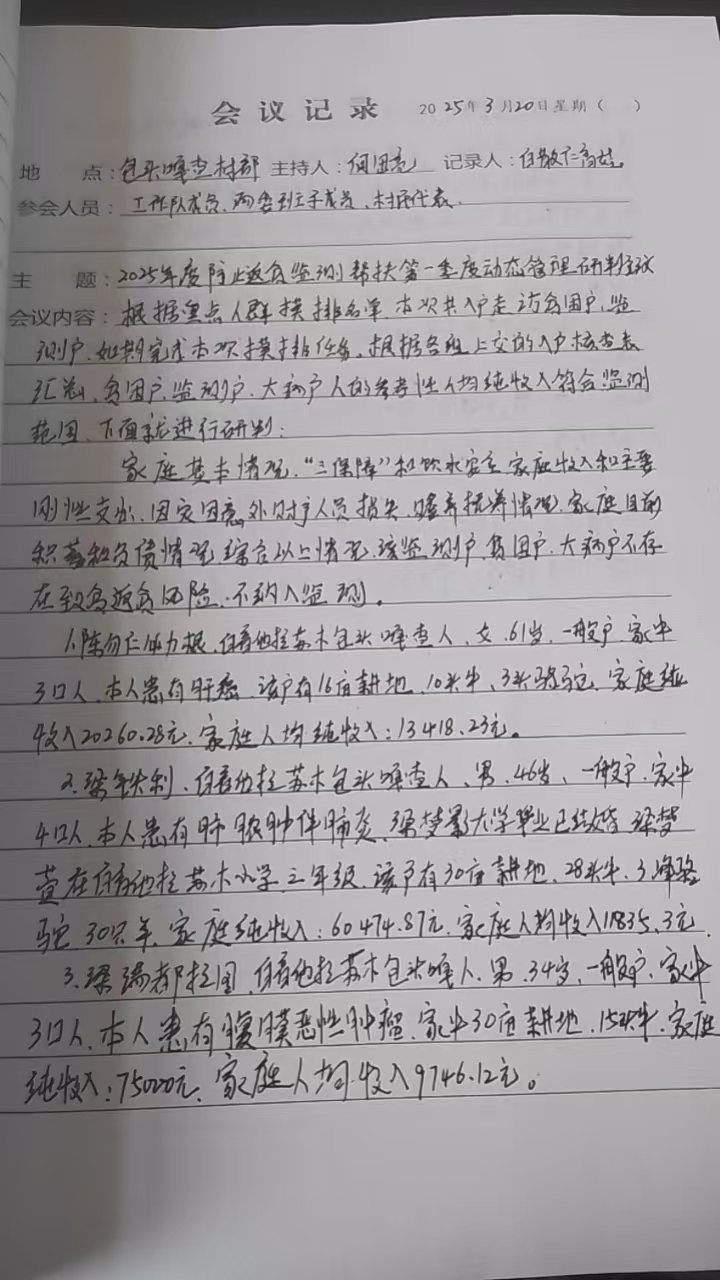 会议记录 2025年3月20日星期( )
地 点:包头嘎查村部 主持人:何田亮 记录人:白敖仁高娃
参会人员:工作队成员、两委班子成员、村民代表.
主 题:2025年度防止返贫监测帮扶第一季度动态管理研判会议
会议内容:根据重点人群摸排名单,本次共入户走访贫困户、监
测户,如期完成本次摸排任务,根据各组上交的入户核查表
汇总,贫困户、监测户、大病户人的参考性人均纯收入符合监测
范围,下面就进行研判:
家庭基本情况,“三保障”和饮水安全,家庭收入和主要
刚性支出,因灾因意外财产人员损失,赡养抚养情况,家庭目前
积蓄和负债情况,综合以上情况,该监测户、贫困户、大病户不存
在致贫返贫风险,不纳入监测。
1.陈 仁 力根,白音他拉苏木包头嘎查人,女,61岁,一般户,家中
3口人,本人患有肝癌,该户有16亩耕地,10头牛,3头骆驼,家庭纯
收入20260.28元,家庭人均纯收入:13418.23元。
2.梁铁刹,白音他拉苏木包头嘎查人,男,46岁,一般户,家中
4口人,本人患有肺脓肿伴肺炎,梁梦影大学毕业已结婚,梁梦
萱在白音他拉苏木小学三年级,该户有30亩耕地,28头牛,3峰骆
驼,30只羊,家庭纯收入:60474.87元,家庭人均收入11835.3元.
3.梁瑞都拉图,白音他拉苏木包头嘎人,男,34岁,一般户,家中
3口人,本人患有腹膜恶性肿瘤,家中30亩耕地,15头牛,家庭
纯收入:75020元,家庭人均收入9746.12元。